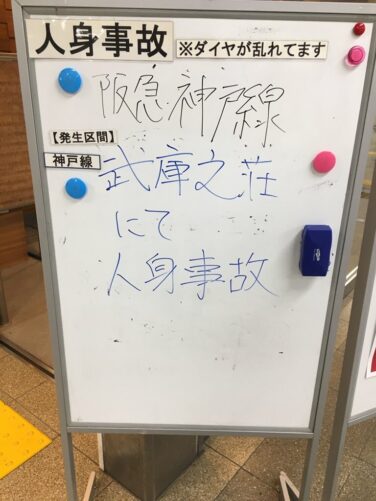 人身事故 ※ダイヤが乱れてます
阪急神戸線
【発生区間】
神戸線 武庫之荘
にて
人身事故